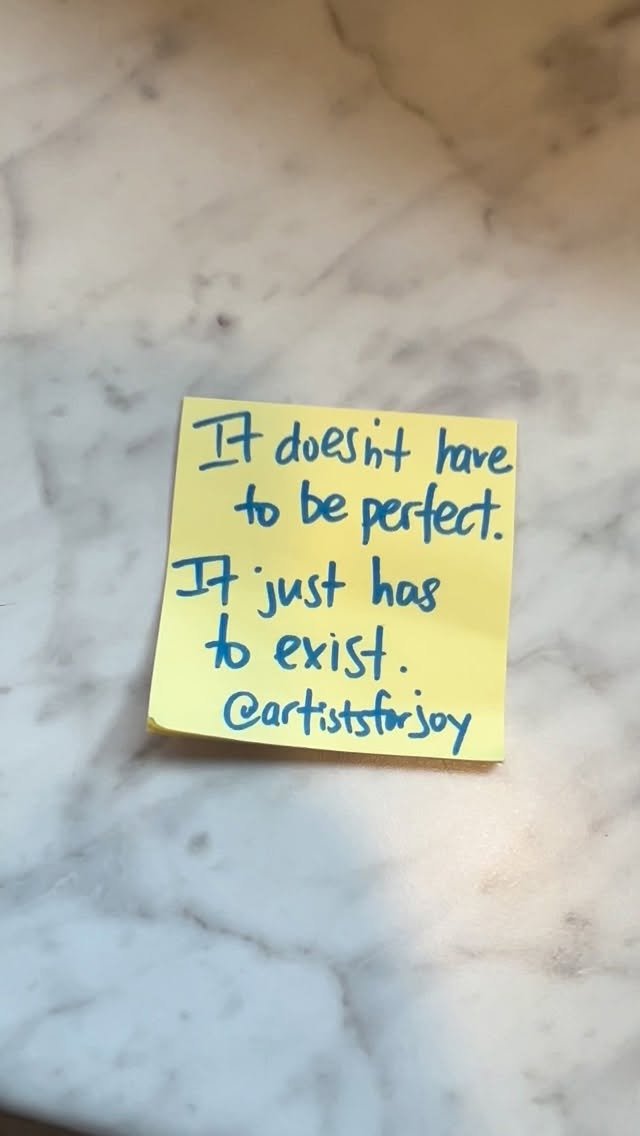 It doesn't have
to be perfect.
It just has
to exist.
@artistsforjoy